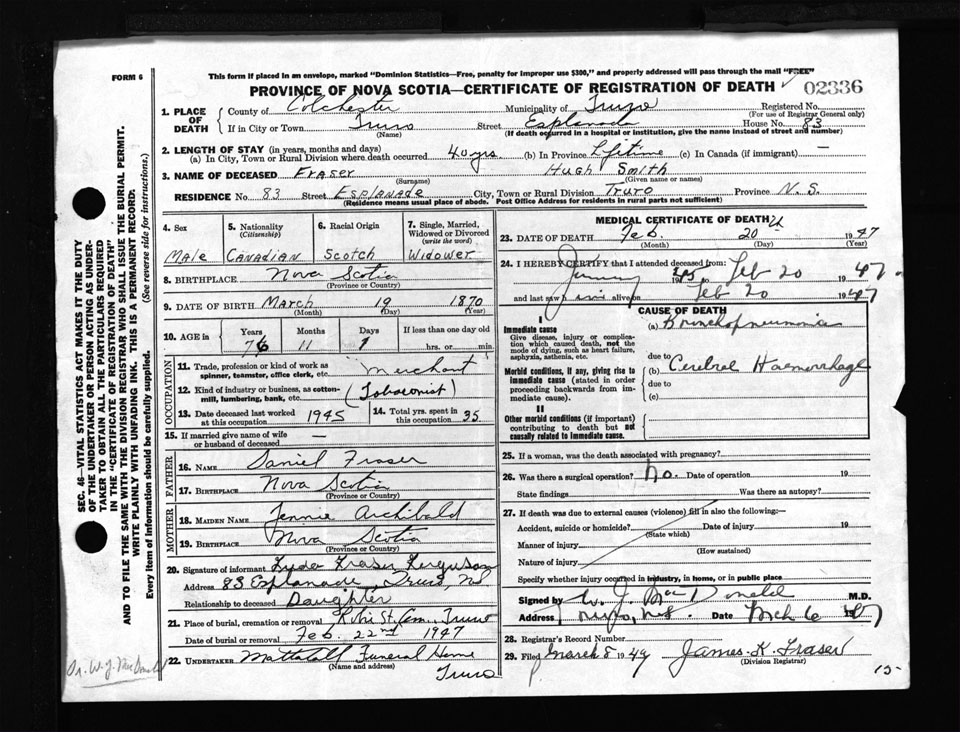 FORM 6
This form if placed in an envelope, marked "Dominion Statistics—Free, penalty for improper use $300," and properly addressed will pass through the mail "FREE"
PROVINCE OF NOVA SCOTIA—CERTIFICATE OF REGISTRATION OF DEATH
02336
1. PLACE OF DEATH
County of Colchester Municipality of Truro Registered No.
(For use of Registrar General only)
If in City or Town Truro Street Esplanade House No. 83
(Name) (If death occurred in a hospital or institution, give the name instead of street and number)
2. LENGTH OF STAY (in years, months and days)
(a) In City, Town or Rural Division where death occurred 40 yrs. (b) In Province Lifetime (c) In Canada (if immigrant) —
3. NAME OF DECEASED Fraser Hugh Smith
(Surname) (Given name or names)
RESIDENCE No. 83 Street Esplanade City, Town or Rural Division Truro Province N.S.
(Residence means usual place of abode. Post Office Address for residents in rural parts not sufficient)
4. Sex
Male
5. Nationality
(Citizenship)
Canadian
6. Racial Origin
Scotch
7. Single, Married, Widowed or Divorced
(write the word)
Widower
8. BIRTHPLACE Nova Scotia
(Province or Country)
9. DATE OF BIRTH March 19 1870
(Month) (Day) (Year)
10. AGE in Years Months Days If less than one day old
76 11 1 hrs. or min.
OCCUPATION
11. Trade, profession or kind of work as spinner, teamster, office clerk, etc. Merchant
12. Kind of industry or business, as cotton-mill, lumbering, bank, etc. (Tobacconist)
13. Date deceased last worked at this occupation 1945
14. Total yrs. spent in this occupation 35
15. If married give name of wife or husband of deceased —
FATHER
16. NAME Daniel Fraser
17. BIRTHPLACE Nova Scotia
(Province or Country)
MOTHER
18. MAIDEN NAME Jennie Archibald
19. BIRTHPLACE Nova Scotia
(Province or Country)
20. Signature of informant Fraser Ferguson
Address 83 Esplanade, Truro, NS
Relationship to deceased Daughter
21. Place of burial, cremation or removal Robie St. Cem. Truro
Date of burial or removal Feb. 22nd 1947
22. UNDERTAKER Mattatall Funeral Home
(Name and address)
Truro
MEDICAL CERTIFICATE OF DEATH
23. DATE OF DEATH Feb. 20th 1947
(Month) (Day) (Year)
24. I HEREBY CERTIFY that I attended deceased from:
January 1945 to Feb 20 1947
and last saw him alive on Feb 20 1947
CAUSE OF DEATH
I
Immediate cause
Give disease, injury or complication which caused death, not the mode of dying, such as heart failure, asphyxia, asthenia, etc.
(a) Bronchopneumonia
due to
Morbid conditions, if any, giving rise to immediate cause (stated in order proceeding backwards from immediate cause).
(b) Cerebral Haemorrhage
due to
(c)
II
Other morbid conditions (if important) contributing to death but not causally related to immediate cause.
25. If a woman, was the death associated with pregnancy?
26. Was there a surgical operation? No. Date of operation 19
State findings Was there an autopsy?
27. If death was due to external causes (violence) fill in also the following:—
Accident, suicide or homicide? Date of injury 19
(State which)
Manner of injury
(How sustained)
Nature of injury
Specify whether injury occurred in industry, in home, or in public place
Signed by W. J. MacDonald M.D.
Address Truro, N.S. Date Mch 6 1947
28. Registrar's Record Number
29. Filed March 8 1947 James K. Fraser
(Division Registrar)
15
SEC. 46—VITAL STATISTICS ACT MAKES IT THE DUTY
OF THE UNDERTAKER OR PERSON ACTING AS UNDER-
TAKER TO OBTAIN ALL THE PARTICULARS REQUIRED
IN THE "CERTIFICATE OF REGISTRATION OF DEATH"
AND TO FILE THE SAME WITH THE DIVISION REGISTRAR WHO SHALL ISSUE THE BURIAL PERMIT.
WRITE PLAINLY WITH UNFADING INK. THIS IS A PERMANENT RECORD.
Every item of information should be carefully supplied. (See reverse side for instructions.)
Dr. W. J. MacDonald